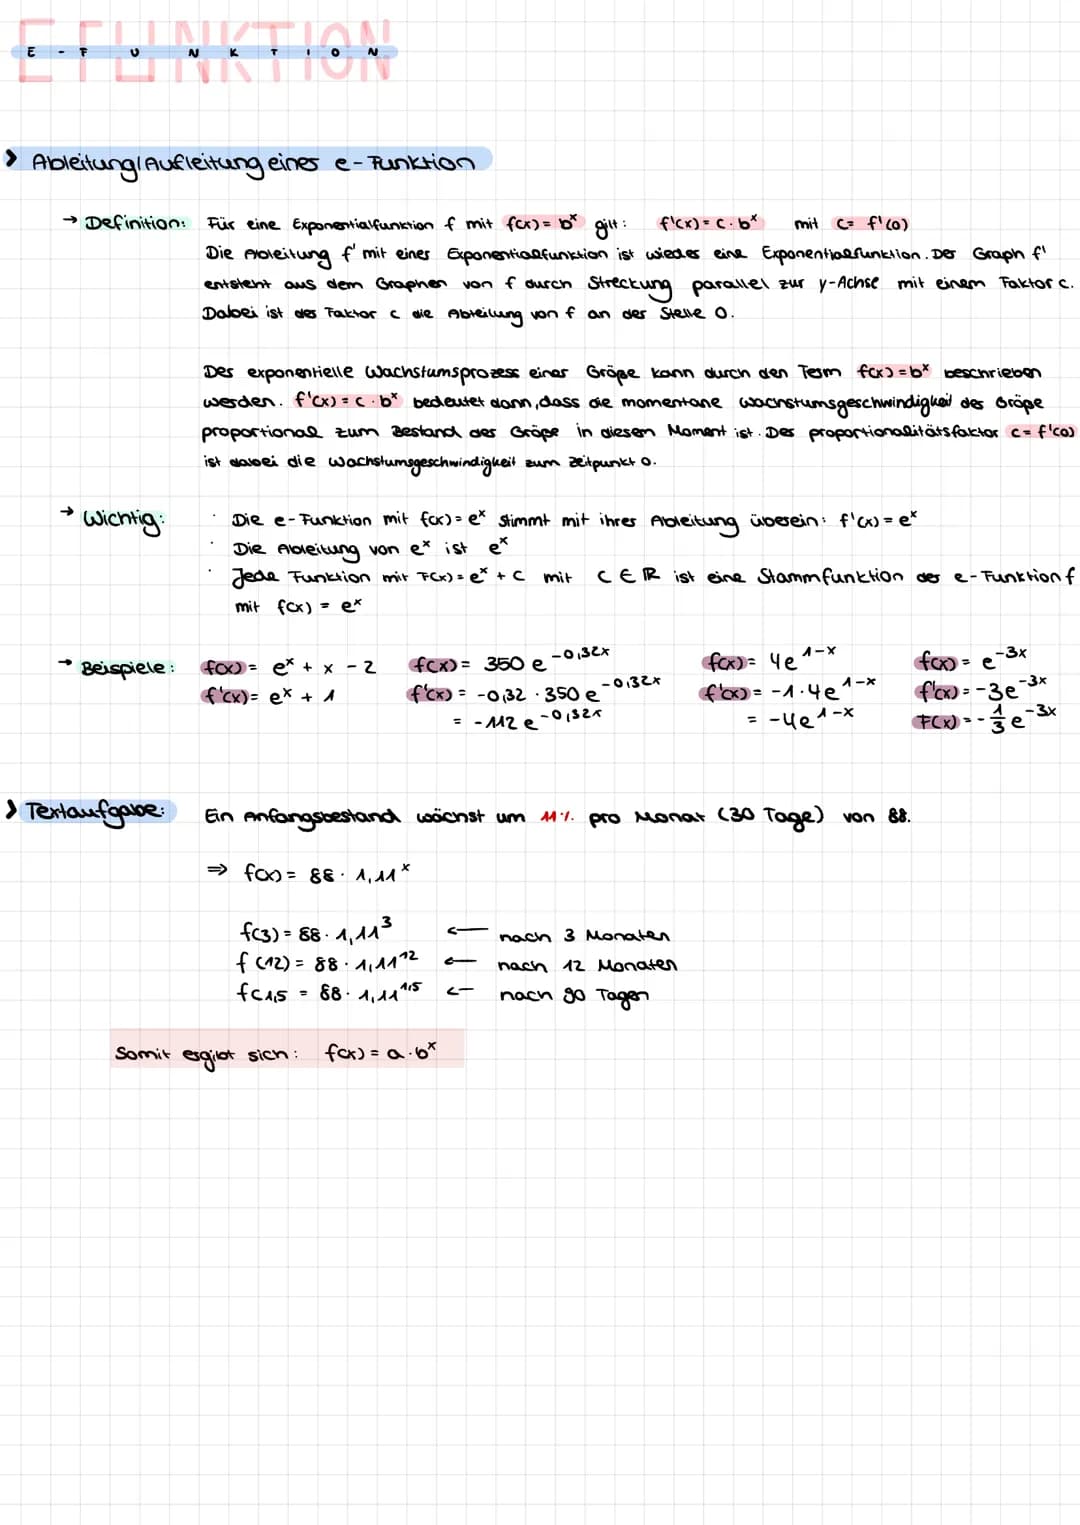 E FUNKTION
E - F U N K T I O N
› Ableitung/Aufleitung einer e-Funktion
→ Definition: Für eine Exponentialfunktion f mit f(x) = bˣ gilt: f'(x) = c · bˣ mit c = f'(0)
Die Ableitung f' mit einer Exponentialfunktion ist wieder eine Exponentialfunktion. Der Graph f'
entsteht aus dem Graphen von f durch Streckung parallel zur y-Achse mit einem Faktor c.
Dabei ist der Faktor c die Ableitung von f an der Stelle 0.
Der exponentielle Wachstumsprozess einer Größe kann durch den Term f(x) = bˣ beschrieben
werden. f'(x) = c · bˣ bedeutet dann, dass die momentane Wachstumsgeschwindigkeit der Größe
proportional zum Bestand der Größe in diesem Moment ist. Der proportionalitätsfaktor c = f'(0)
ist dabei die Wachstumsgeschwindigkeit zum Zeitpunkt 0.
→ Wichtig: · Die e-Funktion mit f(x) = eˣ stimmt mit ihrer Ableitung überein: f'(x) = eˣ
· Die Ableitung von eˣ ist eˣ
· Jede Funktion mit F(x) = eˣ + C mit C ∈ ℝ ist eine Stammfunktion der e-Funktion f
mit f(x) = eˣ
→ Beispiele: f(x) = eˣ + x - 2 f(x) = 350 e^-0,32x f(x) = 4e^1-x f(x) = e^-3x
f'(x) = eˣ + 1 f'(x) = -0,32 · 350 e^-0,32x f'(x) = -1 · 4e^1-x f'(x) = -3e^-3x
= -112 e^-0,32x = -4e^1-x F(x) = -1/3 e^-3x
› Textaufgabe: Ein Anfangsbestand wächst um 11% pro Monat (30 Tage) von 88.
⇒ f(x) = 88 · 1,11ˣ
f(3) = 88 · 1,11³ ← nach 3 Monaten
f(12) = 88 · 1,11¹² ← nach 12 Monaten
f(1,5 = 88 · 1,11^1,5 ← nach 90 Tagen
Somit ergibt sich: f(x) = a · bˣ